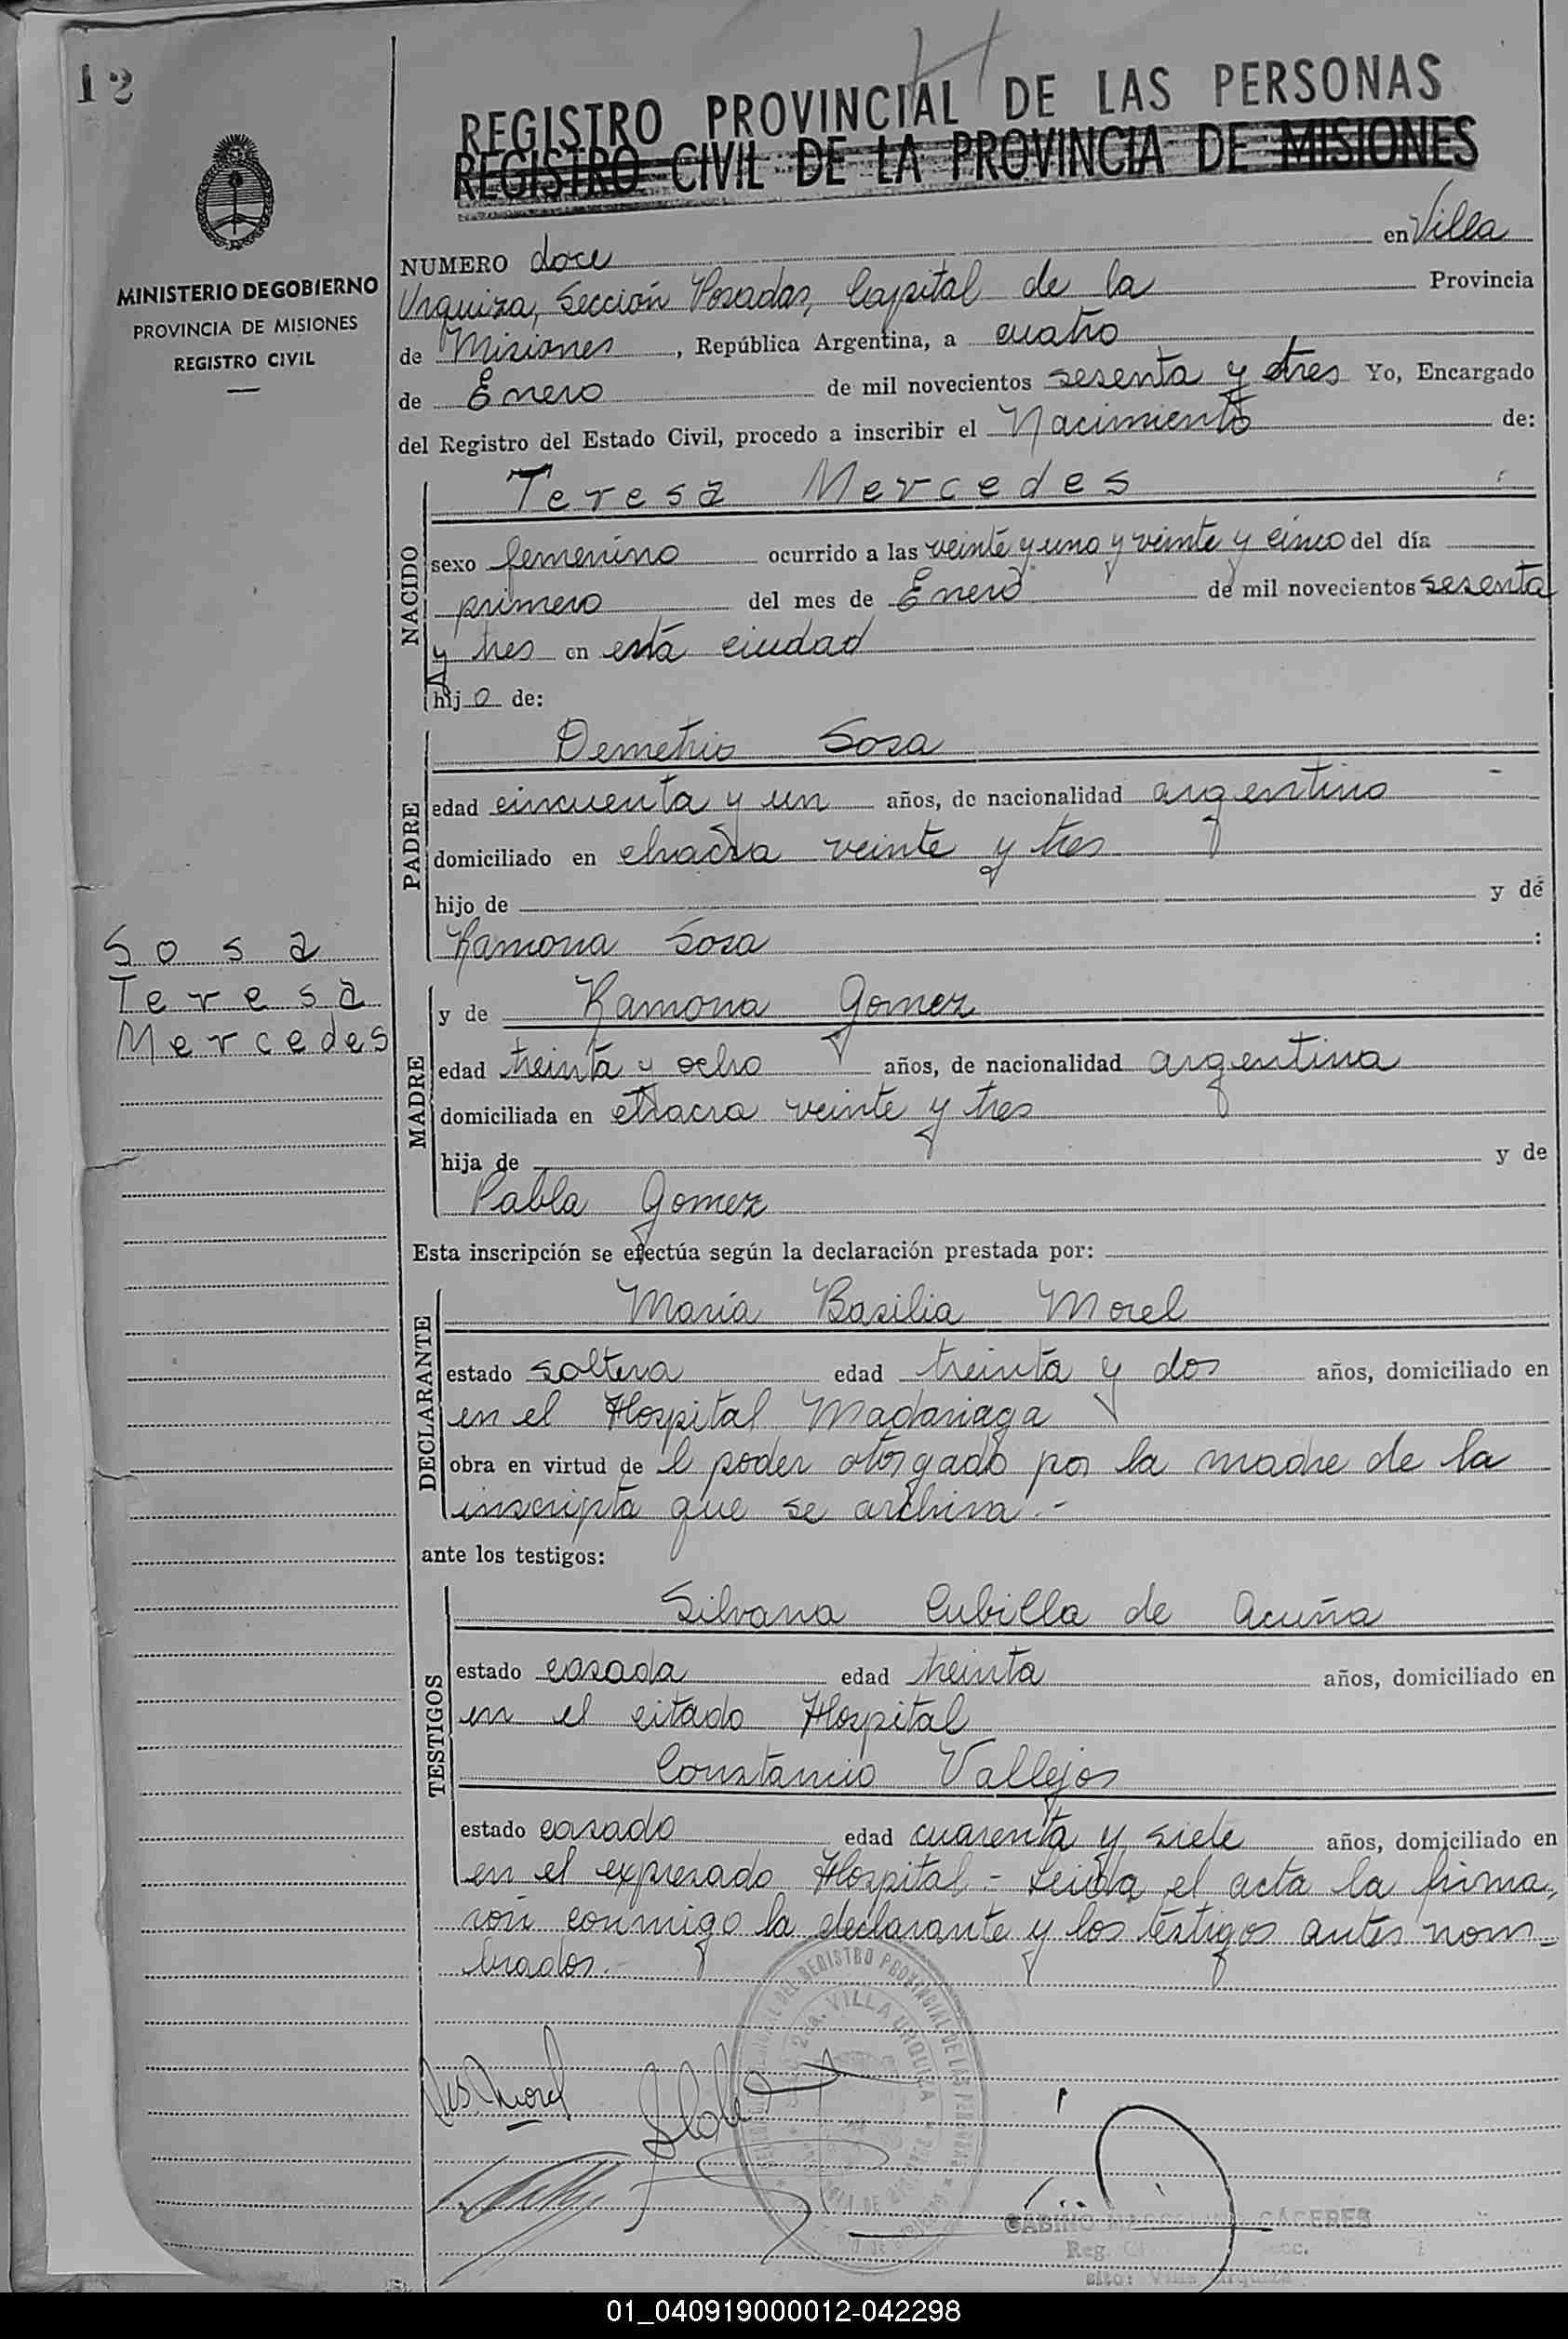 12
MINISTERIO DE GOBIERNO
PROVINCIA DE MISIONES
REGISTRO CIVIL
Sosa
Teresa
Mercedes
REGISTRO PROVINCIAL DE LAS PERSONAS
REGISTRO CIVIL DE LA PROVINCIA DE MISIONES
NUMERO doce en Villa
Urquiza, Sección Posadas, Capital de la Provincia
de Misiones, República Argentina, a cuatro
de Enero de mil novecientos sesenta y tres Yo, Encargado
del Registro del Estado Civil, procedo a inscribir el Nacimiento de:
NACIDO
Teresa Mercedes
sexo femenino ocurrido a las veinte y uno y veinte y cinco del día
primero del mes de Enero de mil novecientos sesenta
y tres en esta ciudad
hij a de:
PADRE
Demetrio Sosa
edad cincuenta y un años, de nacionalidad argentino
domiciliado en chacra veinte y tres
hijo de y de
Ramona Sosa
MADRE
y de Ramona Gomez
edad treinta y ocho años, de nacionalidad argentina
domiciliada en chacra veinte y tres
hija de y de
Pabla Gomez
Esta inscripción se efectúa según la declaración prestada por:
DECLARANTE
María Basilia Morel
estado soltera edad treinta y dos años, domiciliado en
en el Hospital Madariaga
obra en virtud de l poder otorgado por la madre de la
inscripta que se archiva.-
ante los testigos:
TESTIGOS
Silvana Cubilla de Acuña
estado casada edad treinta años, domiciliado en
en el citado Hospital
Constancio Vallejos
estado casado edad cuarenta y siete años, domiciliado en
en el expresado Hospital - Leida el acta la firma-
ron conmigo la declarante y los testigos antes nom-
brados.-
REGISTRO PROVINCIAL DE LAS PERSONAS
2da. VILLA URQUIZA
Morel
GABINO CÁCERES
Reg.
Villa Urquiza
01_040919000012-042298